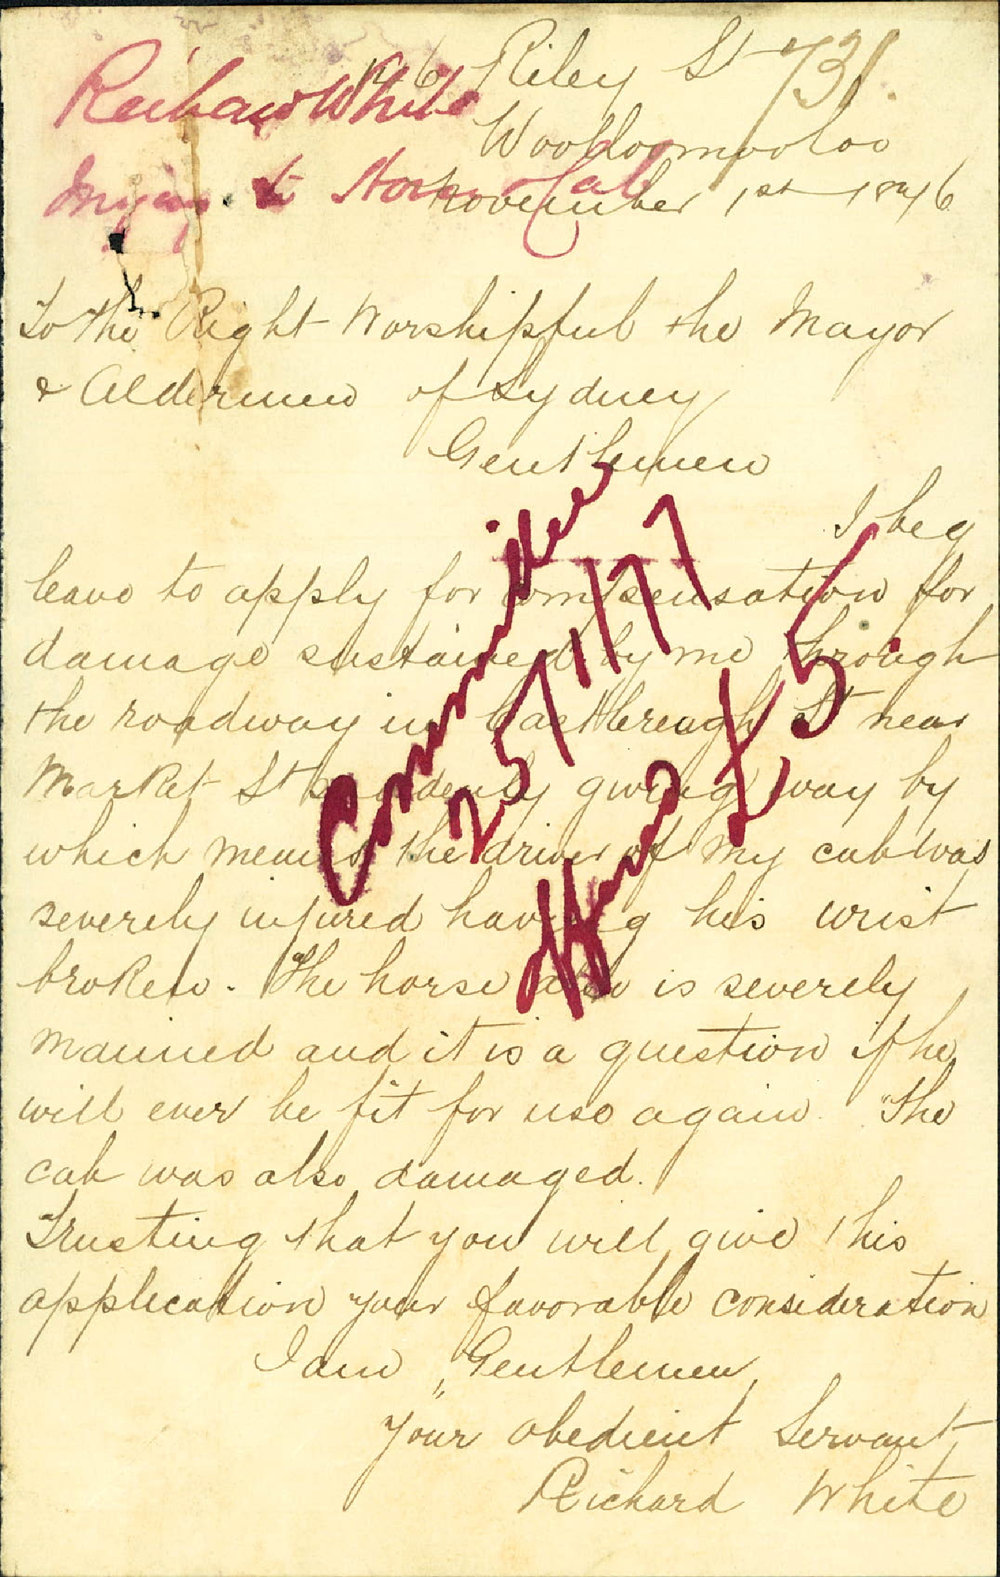 Richard White
Injury to Horse & Cab
146 Riley St
731.
Woolloomooloo
November 1st 1876
To the Right Worshipful the Mayor
& Aldermen of Sydney
Gentlemen
I beg
leave to apply for compensation for
damage sustained by me through
the roadway in Castlereagh St near
Market St suddenly giving way by
which means the driver of my cab was
severely injured having his wrist
broken. The horse also is severely
maimed and it is a question if he
will ever be fit for use again. The
cab was also damaged.
Trusting that you will give this
application your favorable consideration
I am Gentlemen,
Your obedient Servant
Richard White
Committee
25/1/77
Offered £5